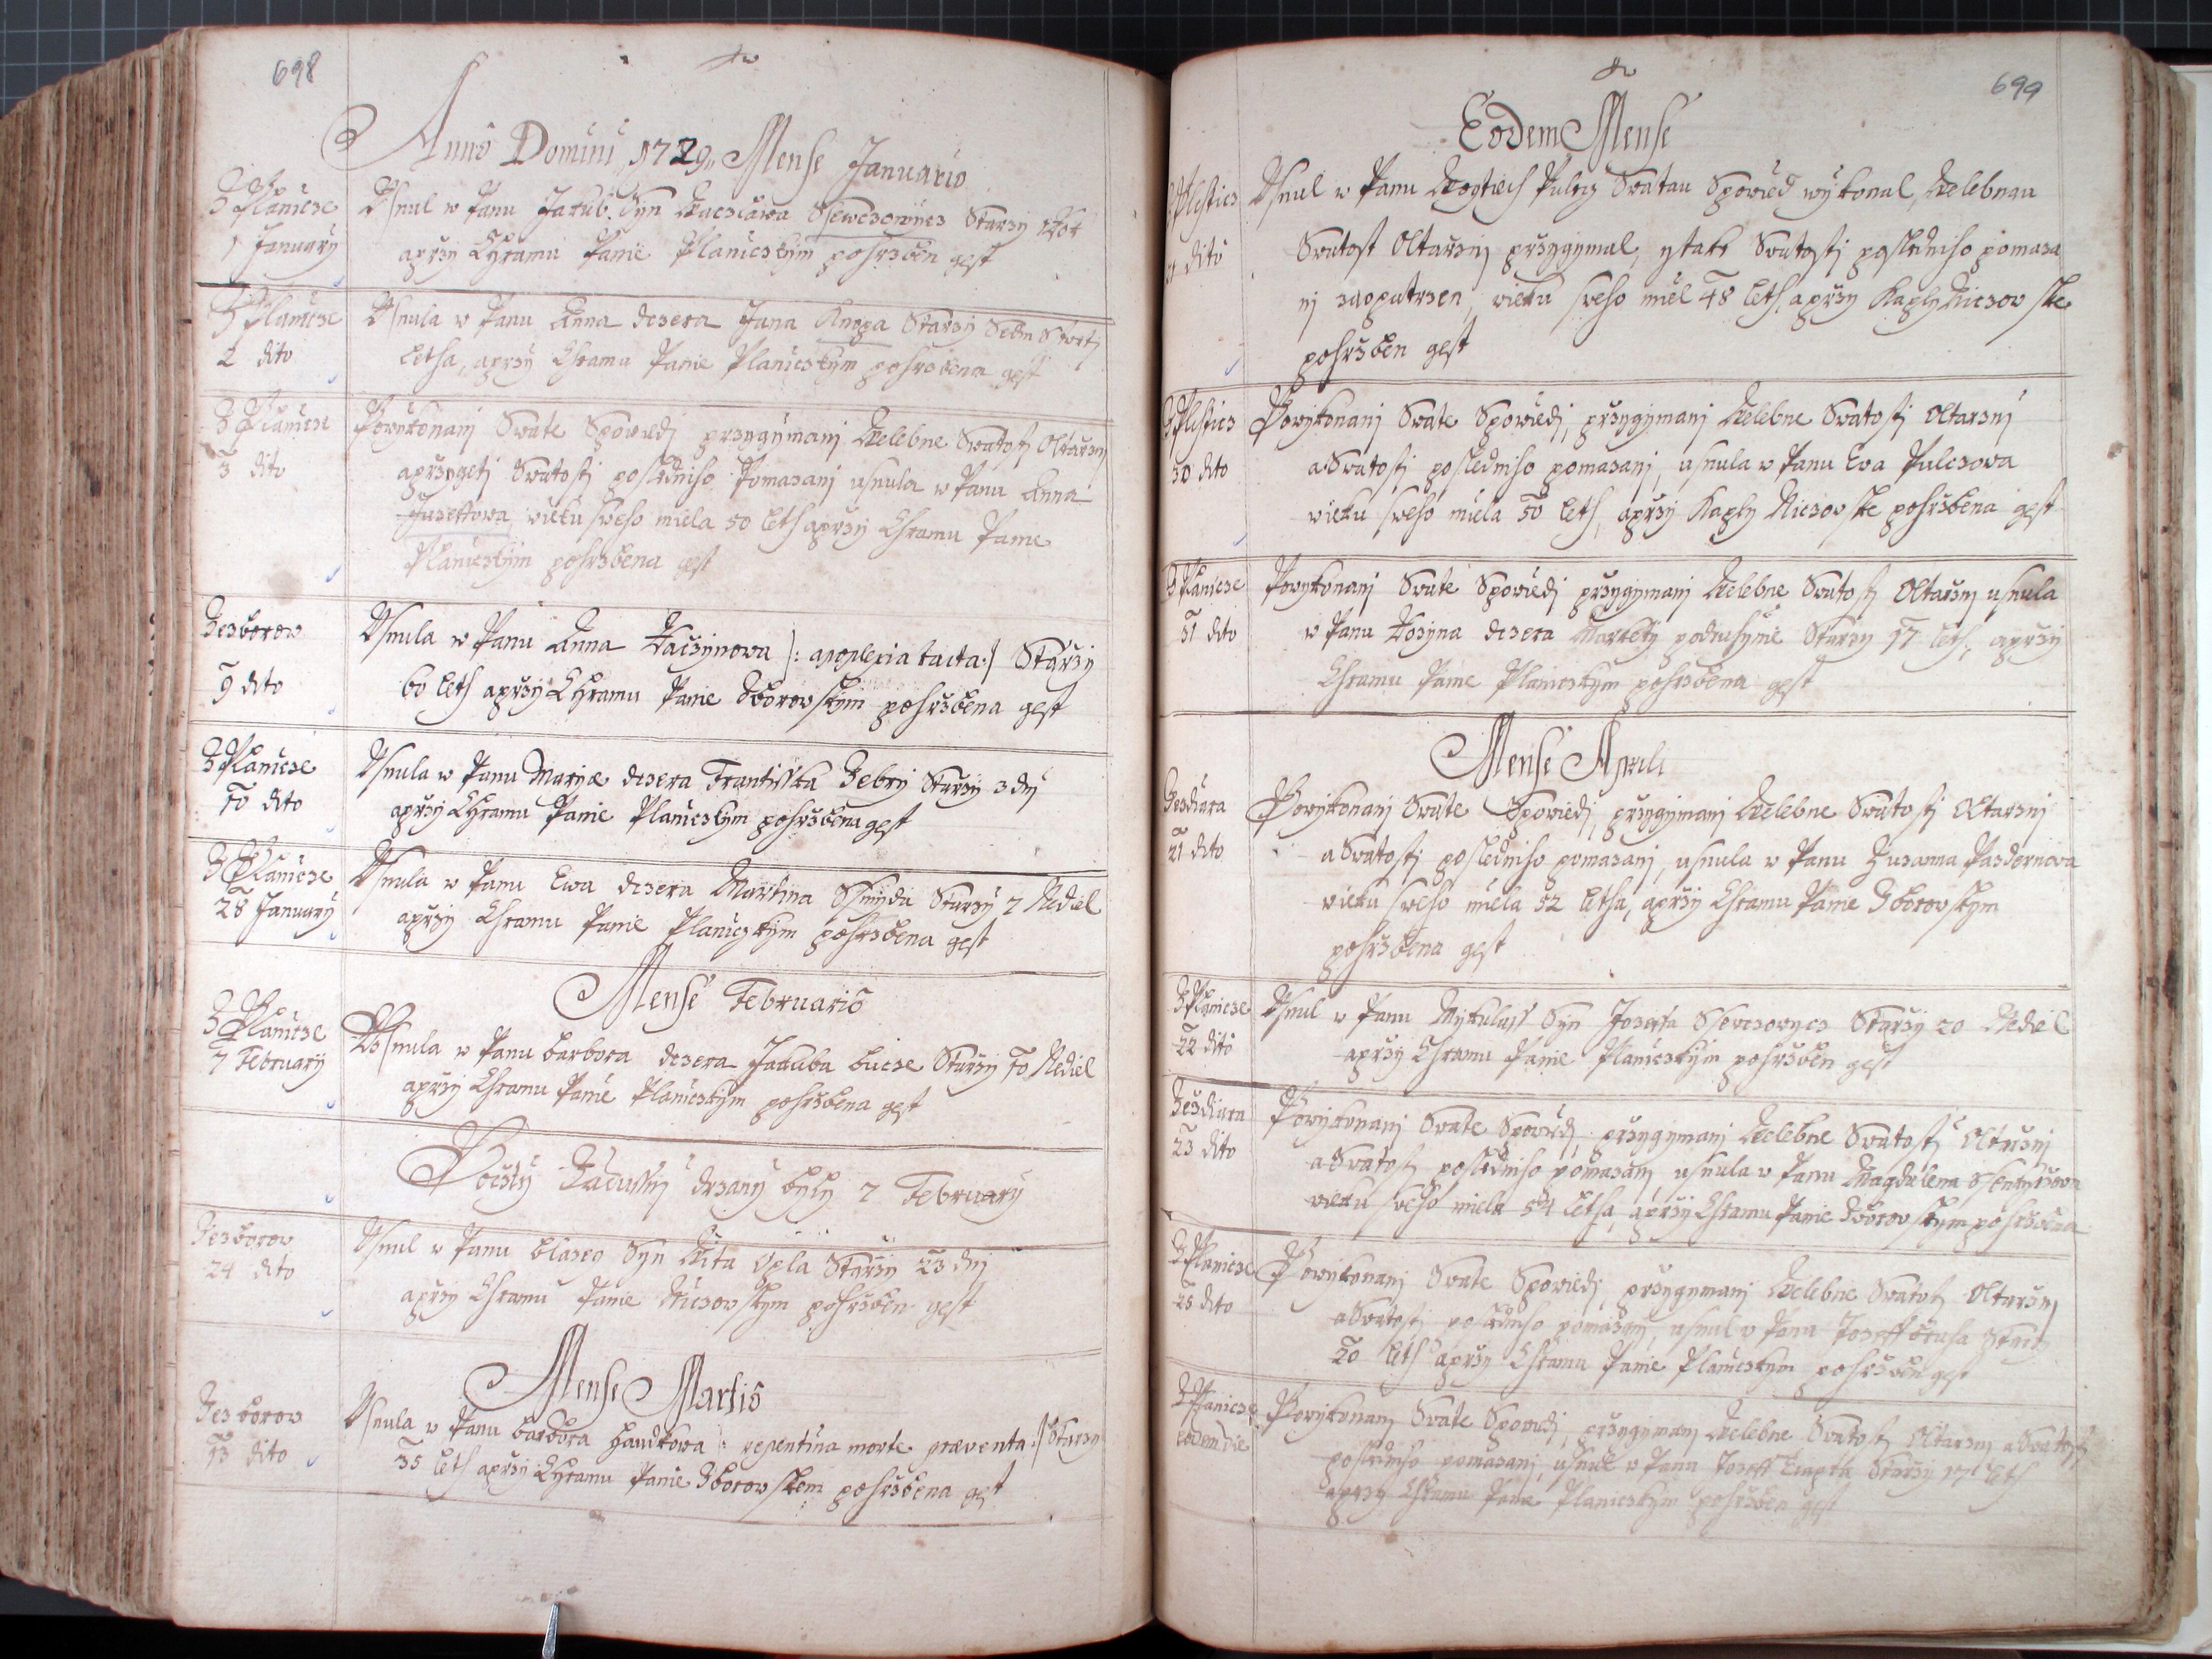 698
Anno Domini 1729 Mense Januario
Z Planicze
1 January
Usnul w Panu Jakub Syn Waczlawa Ssewczowicz Starzy Rok
aprzy Chramu Panie Planiczkym pohrzben gest
Z Planicze
2 dito
Usnula w Panu Anna dczera Jana Knopa Starzy
letha, aprzy Chramu Panie Planiczkym pohrzbena gest
Z Planicze
3 dito
Powykonanj Swate Spowiedj przygymanj Welebne Swatosti Oltarznj
aprzygetj Swatostj posledniho Pomazanj usnula w Panu Anna
wieku sweho miela 50 leth aprzy Chramu Panie
Planiczkym pohrzbena gest
Zezborow
9 dito
Usnula w Panu Anna Kaczynowa /: apoplexia tacta :/ Starzy
60 leth aprzy Chramu Panie Zborowskym pohrzbena gest
Z Planicze
10 dito
Usnula w Panu Maryæ dczera Frantisska Zebry Starzy 3 dny
aprzy Chramu Panie Planiczkym pohrzbena gest
Z Planicze
28 January
Usnula w Panu Ewa dczera Martina Ssmyda Starzy 7 Nediel
aprzy Chramu Panie Planiczkym pohrzbena gest
Mense Februario
Z Planicze
7 February
Usnula w Panu barbora dczera Jakuba bucze Starzy 10 Nediel
aprzy Chramu Panie Planiczkym pohrzbena gest
Pocžty Zadussny držany byly 7 February
Zezborow
24 dito
Usnul w Panu blazeg Syn Wita Opla Starzy 23 dnj
aprzy Chramu Panie Niczowskym pohrzben gest
Mense Martio
Zezborow
13 dito
Usnula w Panu barbora hawlkowa /: repentina morte præventa :/ Starzy
35 leth aprzy Chramu Panie Zborowskem pohrzbena gest
699
Eodem Mense
Z Plistics
dito
Usnul w Panu Wogtiech Pultz Swatau Spowied wykonal, Welebnau
Swatost Oltarznj przygymal, ytake Swatostj poslednjho pomaza
nj zaopatrzen, wieku sweho miel 48 leth, aprzy Kaply Niczow ske
pohrzben gest
Z Plistics
30 dito
Powykonanj Swate Spowiedj, przygymanj Welebne Swatostj Oltarznj
aSwatostj poslednjho pomazanj, usnula w Panu Eva Pulczowa
wieku sweho miela 50 leth, aprzy Kaply Niczowske pohrzbena gest
Z Planicze
31 dito
Powykonanj Swate Spowiedj przygymanj Welebne Swatostj Oltarznj usnula
w Panu Rozyna dczera Markety podruhynie Starzy 17 leth, aprzy
Chramu Panie Planiczkym pohrzbena gest
Mense Aprili
Zezdiara
21 dito
Powykonanj Swate Spowiedj, przygymanj Welebne Swatostj Oltarznj
aSwatostj poslednjho pomazanj, usnula w Panu Zuzanna Pazdernowa
wieku sweho miela 52 letha, aprzy Chramu Panie Zborovskym
pohrzbena gest
Z Planicze
22 dito
Usnul w Panu Mykulass Syn Jozeffa Ssewczowycz Starzy 20 Nediel
aprzy Chramu Panie Planiczkym pohrzben gest
Zezdiara
23 dito
Powykonanj Swate Spowiedj, przygymanj Welebne Swatostj Oltarznj
aSwatostj poslednjho pomazanj, usnula w Panu Magdalena
wieku sweho miela 54 letha, aprzy Chramu Panie Zborovskym pohrzbena
Z Planicze
25 dito
Powykonanj Swate Spowiedj, przygymanj Welebne Swatostj Oltarznj
aSwatostj poslednjho pomazanj, usnul w Panu Jozeff Starzy
20 leth aprzy Chramu Panie Planiczkym pohrzben gest
Z Planicze
Eodem die
Powykonanj Swate Spowiedj, przygymanj Welebne Swatostj Oltarznj aSwatostj
poslednjho pomazanj, usnul w Panu Jozeff Starzy 17 leth
aprzy Chramu Panie Planiczkym pohrzben gest